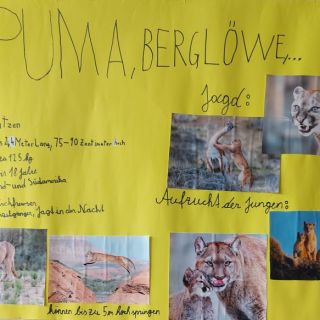 PUMA, BERGLÖWE,...
Jagd:
Meter lang, 75-90 Zentimeter hoch
125 kg
18 Jahre
und Südamerika
Einzelgänger, Jagt in der Nacht
Aufzucht der Jungen:
können bis zu 5m hoch springen